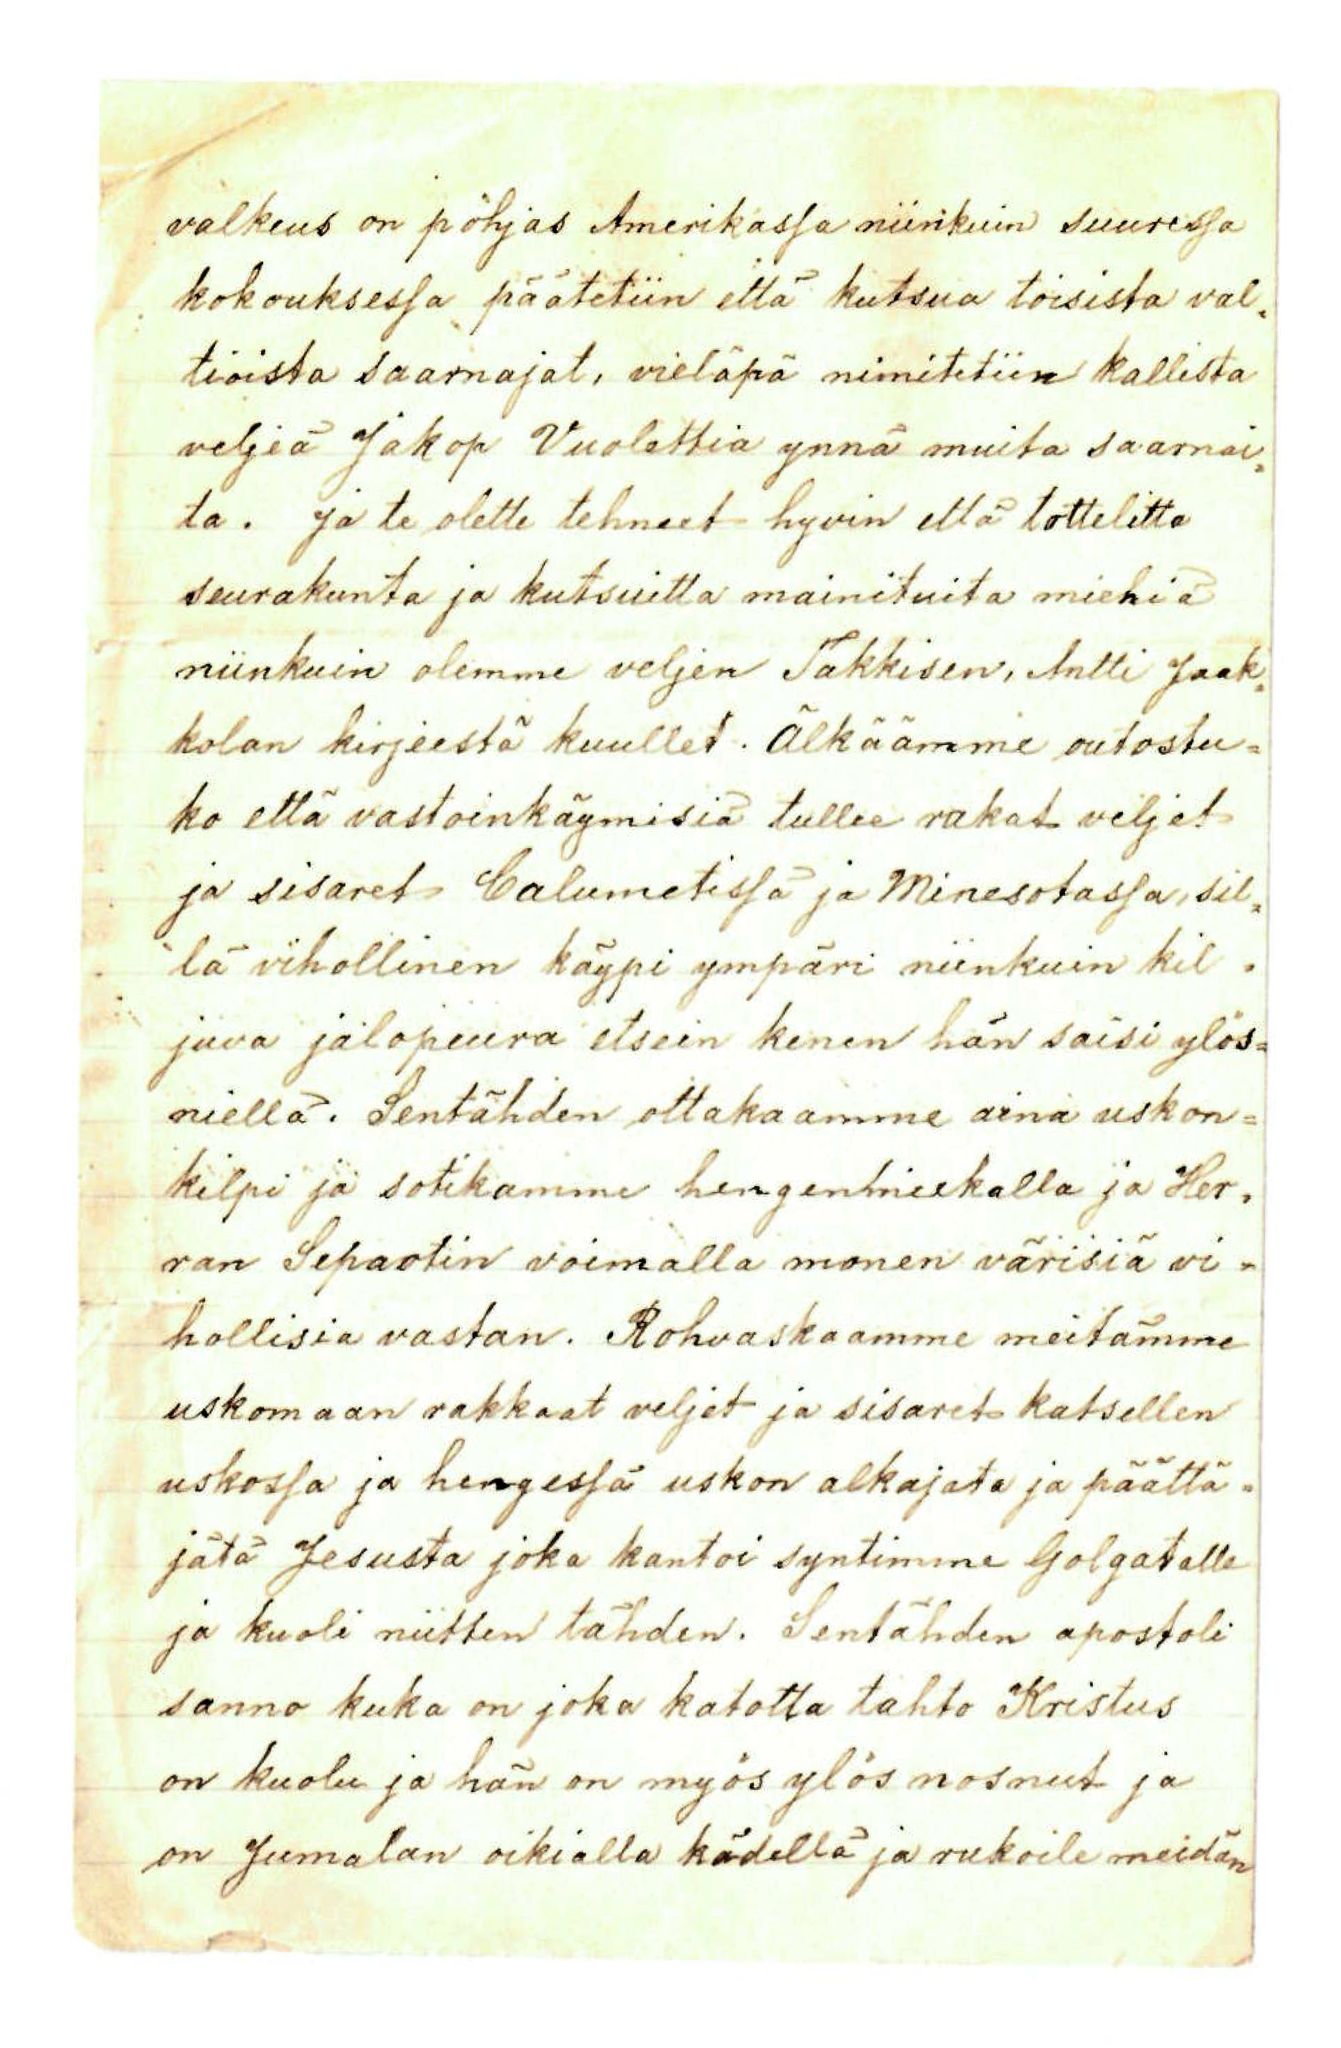 valkeus on pöhjas Amerikassa niinkuin suuressa
kokouksessa päätetiin että kutsua toisista val-
tioista saarnajat, vieläpä nimitetiin kallista
veljeä Jakop Vuolettia ynnä muita saarnai-
ta. ja te olette tehneet hyvin että tottelitta
seurakunta ja kutsuitta mainituita miehiä
niinkuin olemme veljen Takkisen, Antti Jaak-
kolan kirjeestä kuullet. Älkäämme outostu=
ko että vastoinkäymisiä tullee rakat veljet
ja sisaret Calumetissä ja Minesotassa, sil-
lä vihollinen käypi ympäri niinkuin kil-
juva jalopeura etsein kenen hän saisi ylös=
niellä. Sentähden ottakaamme aina uskon=
kilpi ja sotikamme hengenmiekalla ja Her-
ran Sepaotin voimalla monen värisiä vi-
hollisia vastan. Rohvaskaamme meitämme
uskomaan rakkaat veljet ja sisaret katsellen
uskossa ja hengessä uskon alkajata ja päättä-
jätä Jesusta joka kantoi syntimme Golgatalle
ja kuoli niitten tähden. Sentähden apostoli
sanno kuka on joka katotta tahto Kristus
on kuolu ja hän on myös ylös nosnut ja
on Jumalan oikialla kädellä ja rukoile meidän